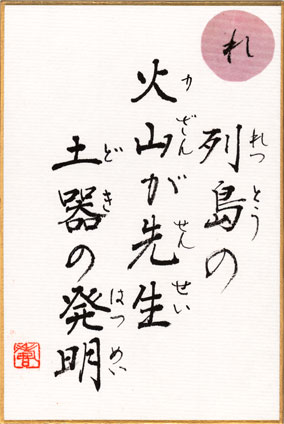 れ
列島の
れっとう
火山が先生
かざんせんせい
土器の発明
どきはつめい